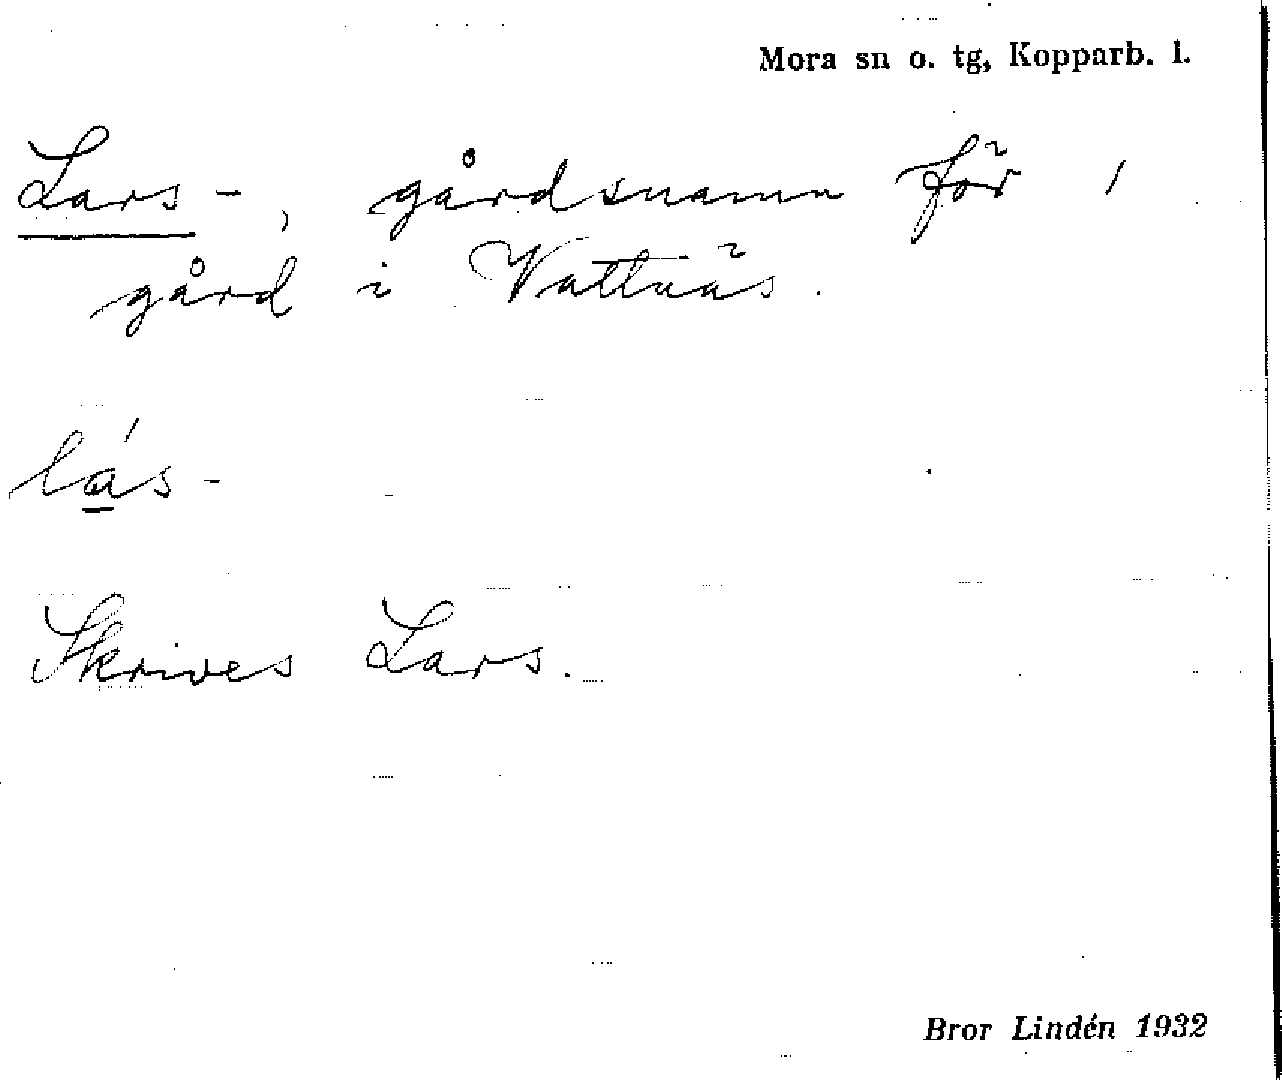 Mora sn o. tg, Kopparb. l.
Lars-, gårdsnamn för 1
gård i Vattnäs.
lás-
Skrives Lars.
Bror Lindén 1932